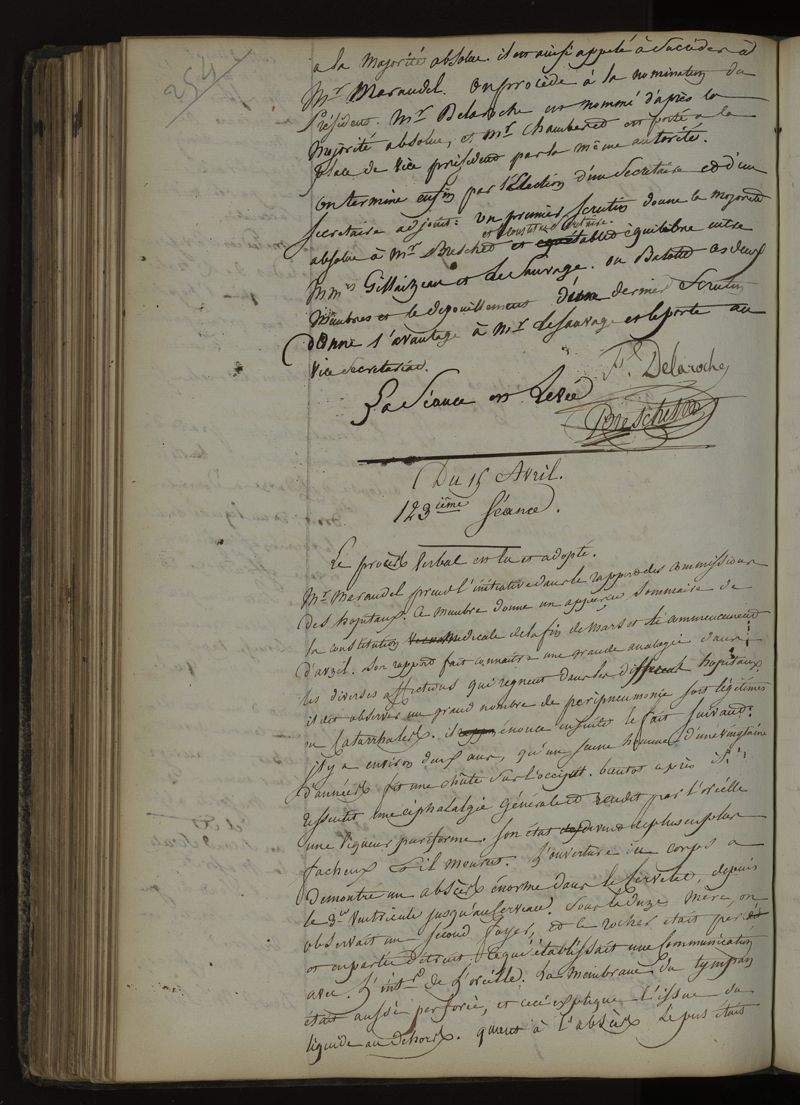 254
a la majorité absolue. il est ainsi appelé à succéder à
Mr Marandel. On procède à la nomination du
Président. Mr Delaroche est nommé d'après la
majorité absolue, et Mr Chamberet est porté a la
place de vice président par la même autorité.
On termine enfin par l'élection d'un Secretaire et d'un
Secretaire adjoint: un premier scrutin donne la majorité
absolue à Mr Breschet et établit équilibre entre
Mmrs Gillaizeau et de Sauvage. on Balotte ces deux
Membres et le depouillement d'un dernier Scrutin
donne l'avantage à Mr de Sauvage et le porte au
vice Secretariat.
F. Delaroche
La Séance est Levée
Breschet
Du 15 Avril.
123ième Séance.
Le procès Verbal est lu et adopté.
Mr Marandel prend l'initiative dans le rapport des commissions
des hopitaux. Ce membre donne un apperçu sommaire de
la constitution médicale de la fin de Mars et de commencement
d'avril. Son rapport fait connaître une grande analogie dans
les diverses affections qui règnent dans les différents hopitaux
il dit observer un grand nombre de peripneumonie soit légitimes
ou Catarrhales. il énonce ensuite le fait suivant:
il y a environ deux ans, qu'un jeune homme d'une vingtaine
d'années fit une chute sur l'occiput. bientot après il
ressentit une céphalalgie générale et rendit par l'oreille
une liqueur puriforme. Son état devint de plus en plus
facheux et il mourut. L'ouverture du corps a
Démontré un abscès énorme dans le cervelet, depuis
le 3e Ventricule jusqu'au cerveau. Sous la dure mère, on
observait un second foyer, et le rocher était percé
et en partie détruit; ce qui établissait une communication
avec l'intr de l'oreille. La membrane du tympan
était aussi perforée, et ceci explique l'issue du
liquide au dehors. quant à l'abscès le pus était